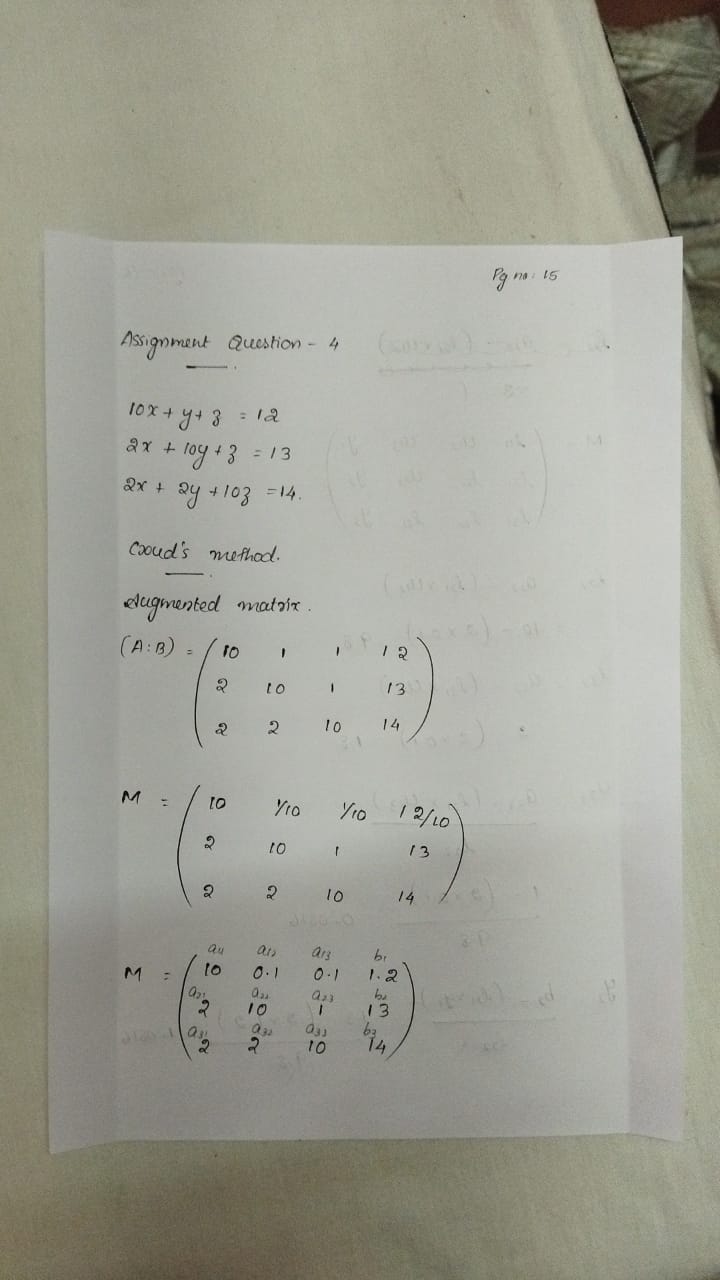 Pg no: 15
Assignment Question - 4
10x + y + z = 12
2x + 10y + z = 13
2x + 2y + 10z = 14.
Croud's method.
Augmented matrix.
(A:B) = ( 10 1 1 12
2 10 1 13
2 2 10 14 )
M = ( 10 1/10 1/10 12/10
2 10 1 13
2 2 10 14 )
a11 a12 a13 b1
M = ( 10 0.1 0.1 1.2
a21 a22 a23 b2
2 10 1 13
a31 a32 a33 b3
2 2 10 14 )